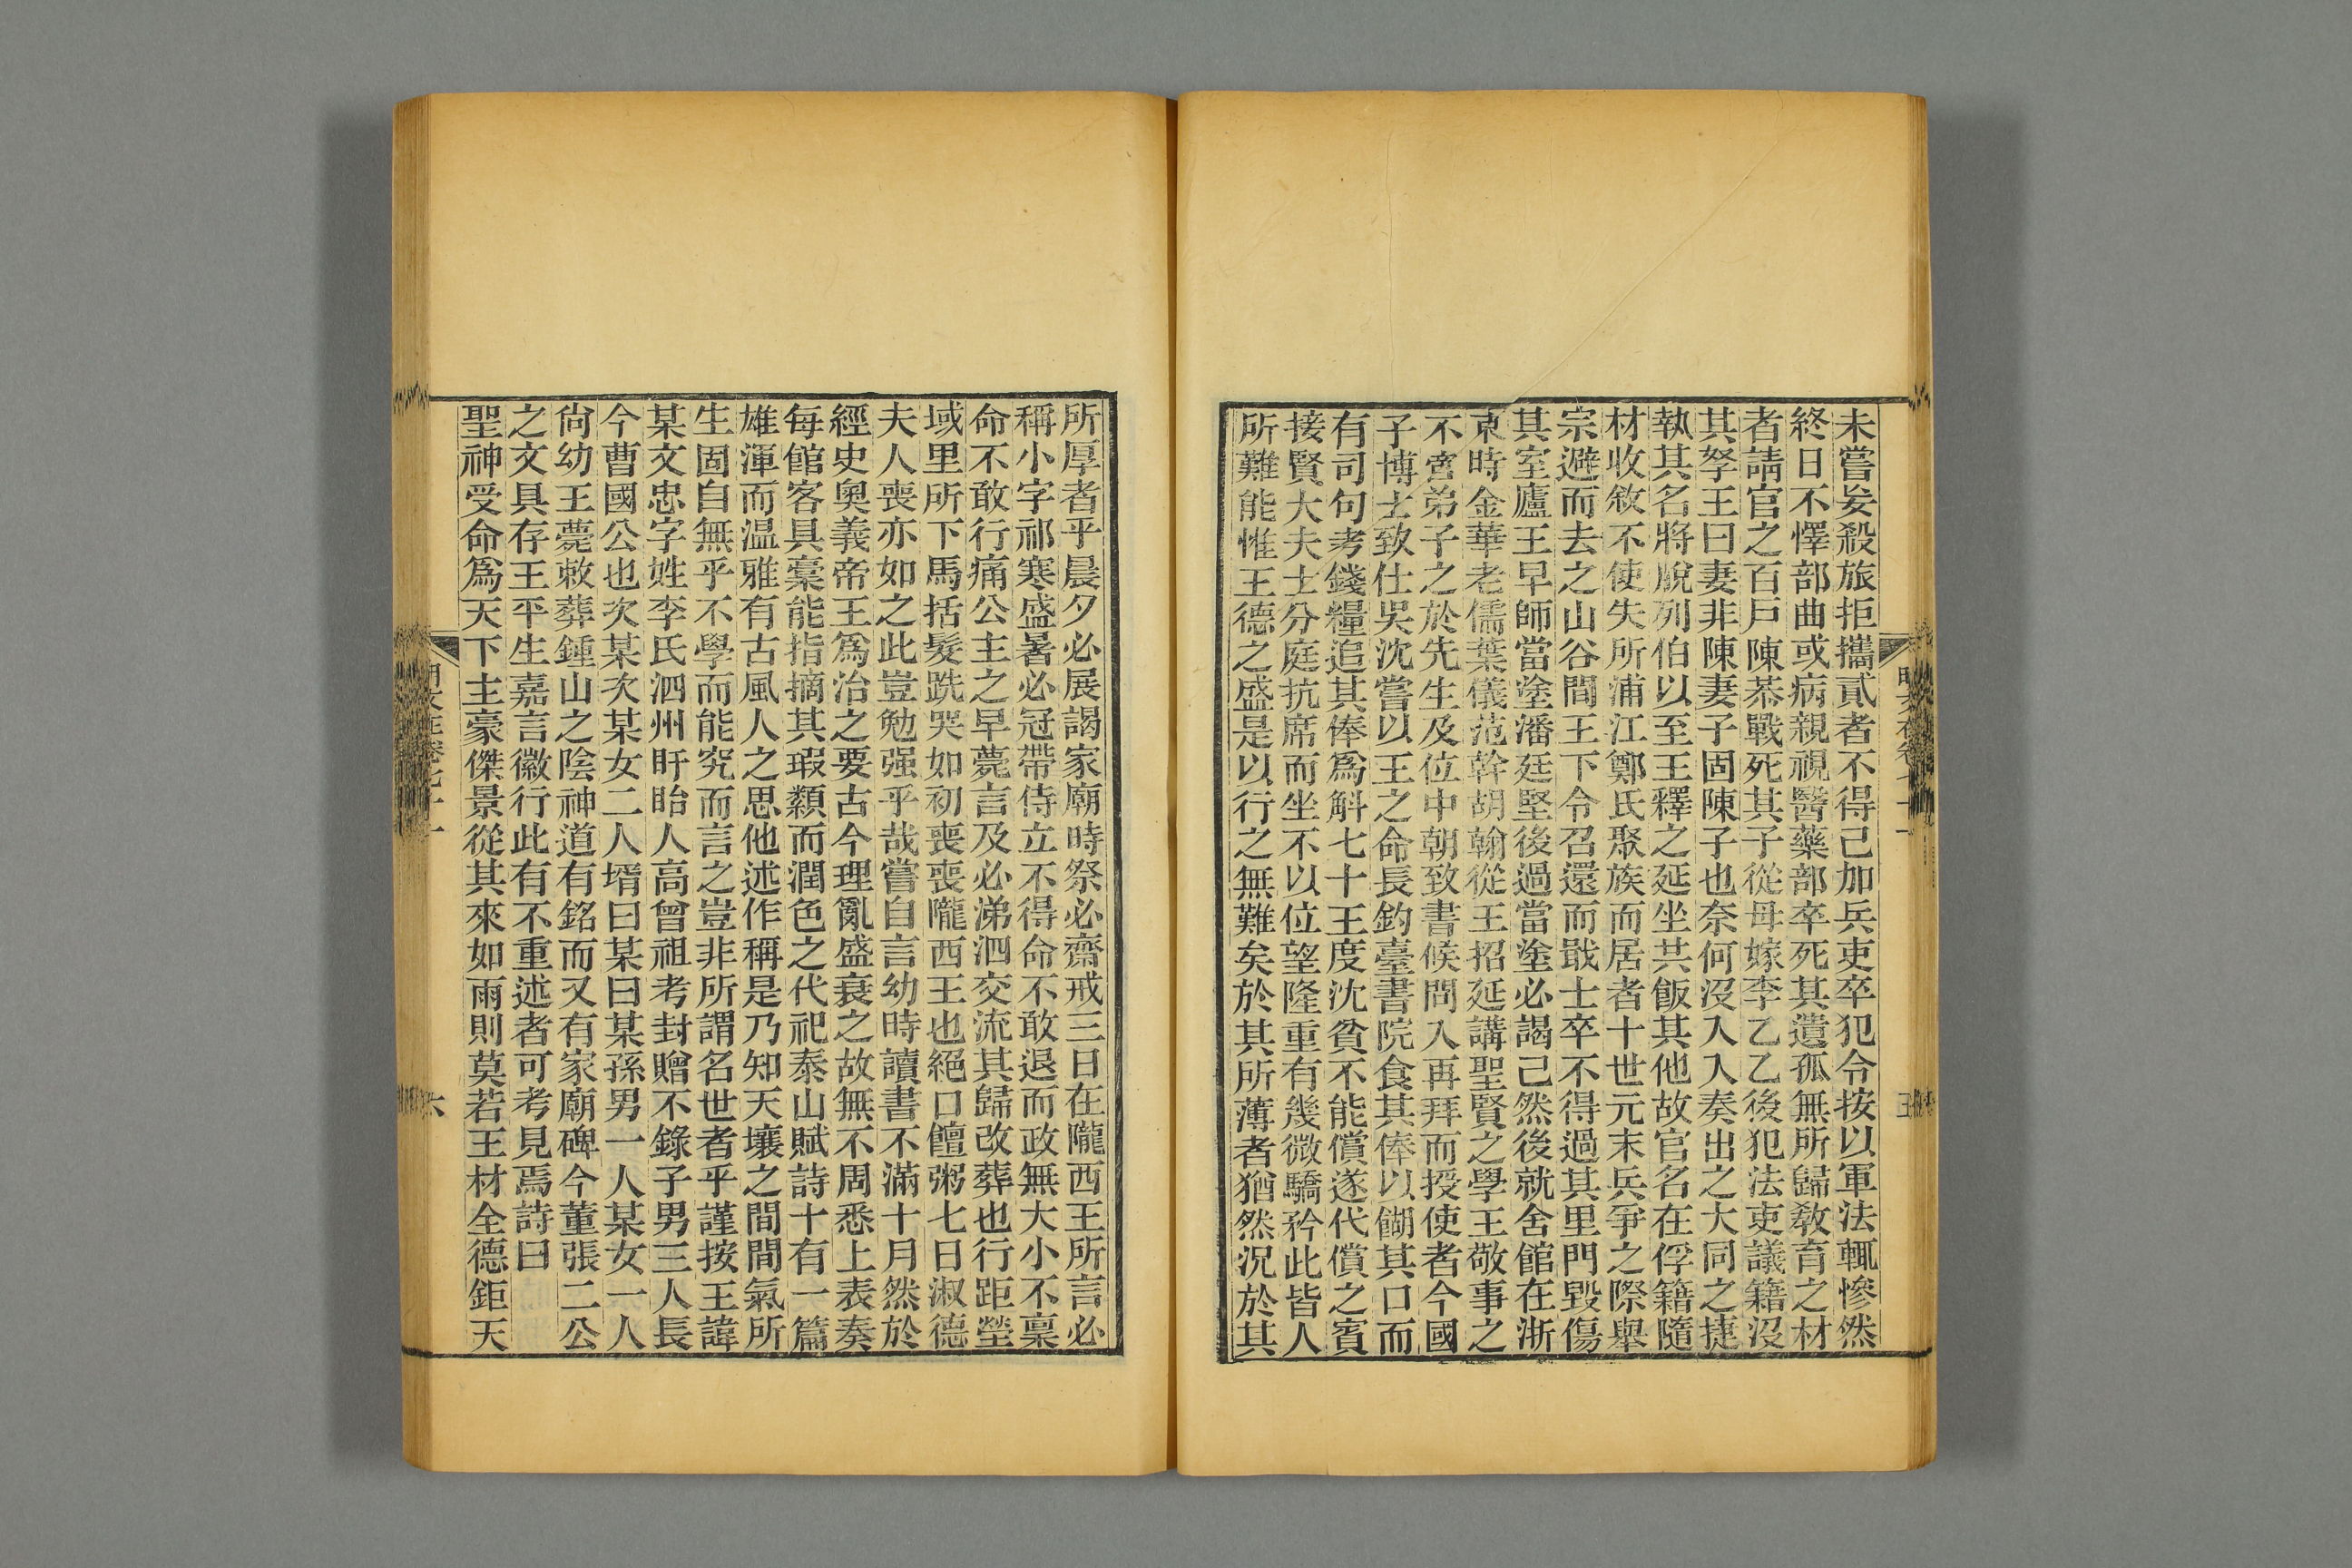 未嘗妄殺旅拒攜貳者不得已加兵吏卒犯令按以軍法輒慘然
終日不懌部曲或病親視醫藥部卒死其遺孤無所歸敎育之材
者請官之百戸陳恭戰死其子從母嫁李乙乙後犯法吏議籍沒
其孥王曰妻非陳妻子固陳子也奈何沒入入奏出之大同之捷
執其名將脫列伯以至王釋之延坐共飯其他故官名在俘籍隨
材收敘不使失所浦江鄭氏聚族而居者十世元末兵爭之際舉
宗避而去之山谷間王下令召還而戢士卒不得過其里門毀傷
其室廬王早師當塗潘廷堅後過當塗必謁己然後就舍館在浙
東時金華老儒葉儀范幹胡翰從王招延講聖賢之學王敬事之
不啻弟子之於先生及位中朝致書候問入再拜而授使者今國
子博士致仕吳沈嘗以王之命長釣臺書院食其俸以餬其口而
有司句考錢糧追其俸爲斛七十王度沈貧不能償遂代償之賓
接賢大夫士分庭抗席而坐不以位望隆重有幾微驕矜此皆人
所難能惟王德之盛是以行之無難矣於其所薄者猶然況於其
五
所厚者乎晨夕必展謁家廟時祭必齋戒三日在隴西王所言必
稱小字祁寒盛暑必冠帶侍立不得命不敢退而政無大小不稟
命不敢行痛公主之早薨言及必涕泗交流其歸改葬也行距塋
域里所下馬括髮跣哭如初喪喪隴西王也絕口饘粥七日淑德
夫人喪亦如之此豈勉强乎哉嘗自言幼時讀書不滿十月然於
經史奧義帝王爲治之要古今理亂盛衰之故無不周悉上表奏
每館客具稾能指摘其瑕纇而潤色之代祀泰山賦詩十有一篇
雄渾而温雅有古風人之思他述作稱是乃知天壤之間間氣所
生固自無乎不學而能究而言之豈非所謂名世者乎謹按王諱
某文忠字姓李氏泗州盱眙人高曾祖考封贈不錄子男三人長
今曹國公也次某次某女二人壻曰某曰某孫男一人某女一人
尙幼王薨敕葬鍾山之陰神道有銘而又有家廟碑今董張二公
之文具存王平生嘉言徽行此有不重述者可考見焉詩曰
聖神受命爲天下主豪傑景從其來如雨則莫若王材全德鉅天
六